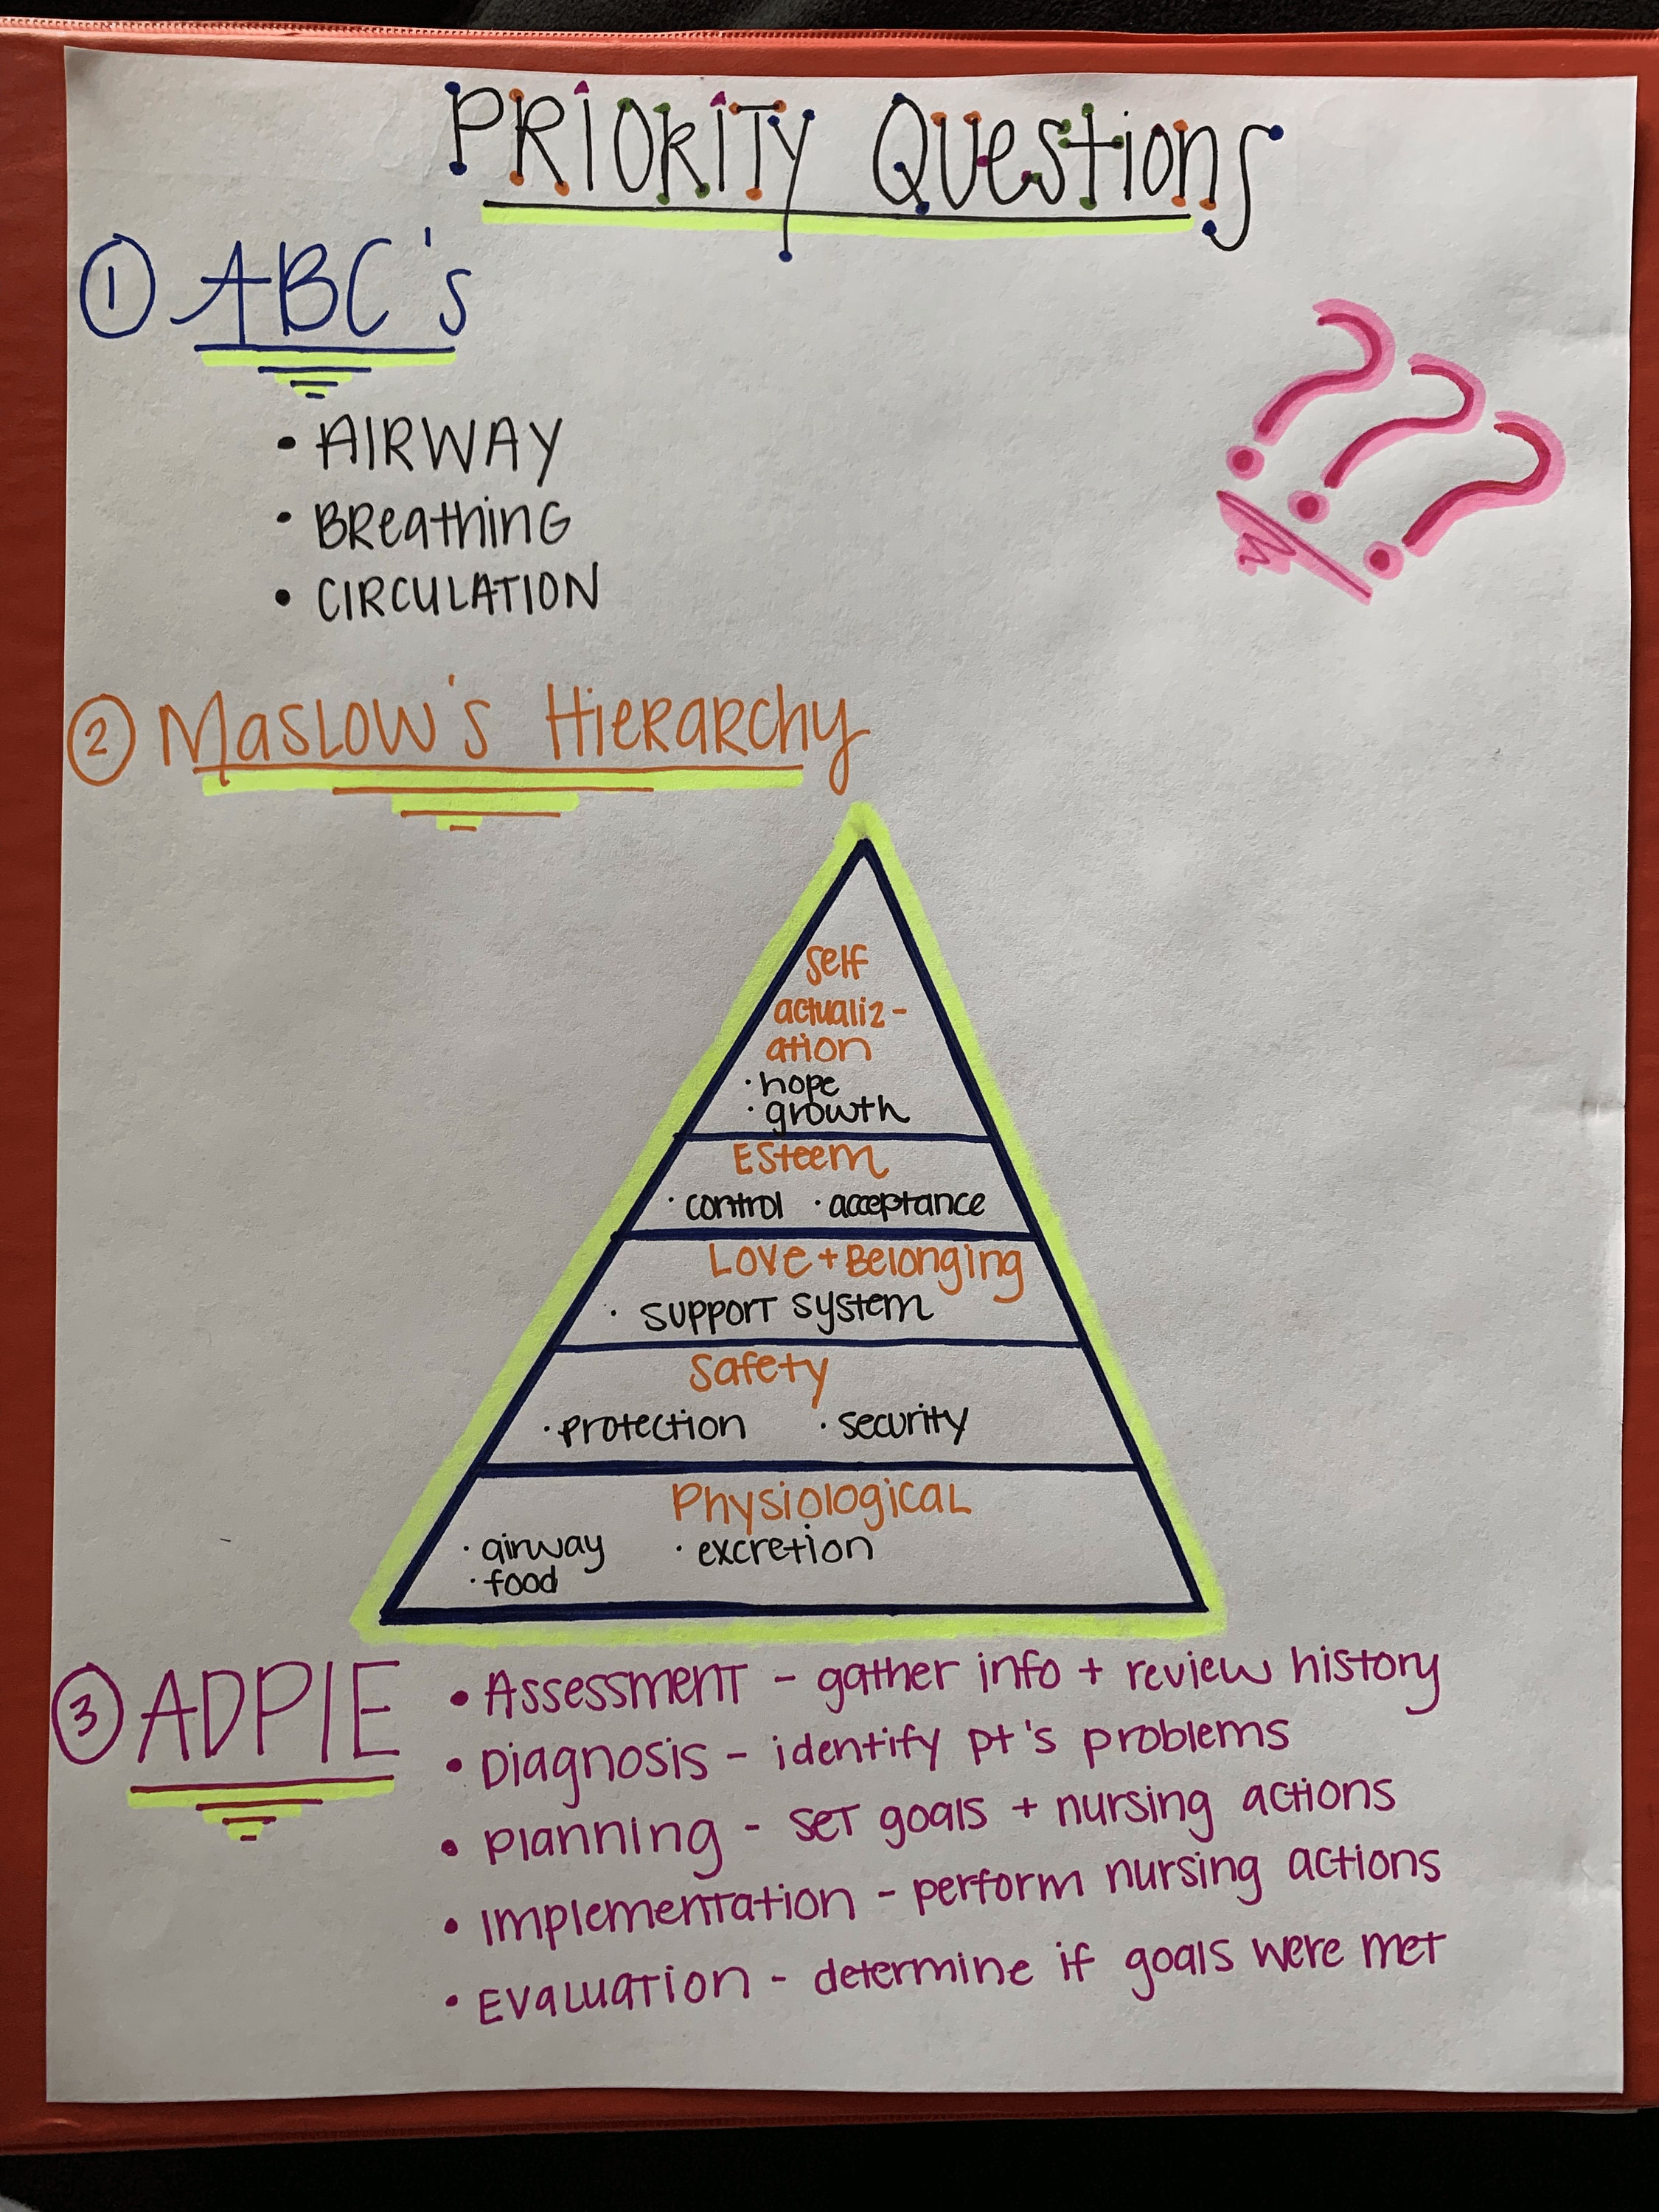 PRIORITY Questions
① ABC's
• AIRWAY
• BReathinG
• CIRCULATION
???
② MasLow's HieRaRchy
Self
actualiz-
ation
• hope
• growth
Esteem
• control • acceptance
Love + Belonging
• support system
Safety
• protection • security
Physiological
• airway • excretion
• food
③ ADPIE
• Assessment - gather info + review history
• Diagnosis - identify pt's problems
• Planning - set goals + nursing actions
• Implementation - perform nursing actions
• Evaluation - determine if goals were met